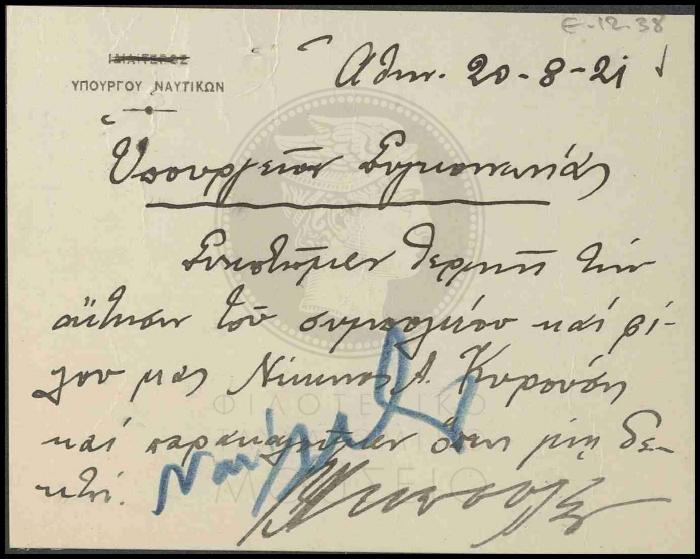 Ε-12-38
ΙΔΙΑΙΤΕΡΟΣ
ΥΠΟΥΡΓΟΥ ΝΑΥΤΙΚΩΝ
Αθην. 20-8-21
Ὑπουργεῖον Συγκοινωνίας
Συνιστῶμεν θερμῶς τὴν
αἴτησιν τοῦ συμπολίτου καὶ φί-
λου μας Νίκωνος Α. Κυρούση
καὶ παρακαλοῦμεν ὅπως γίνῃ δε-
κτή.
ΦΙΛΟΤΕΛΙΚΟ
ΜΟΥΣΕΙΟ